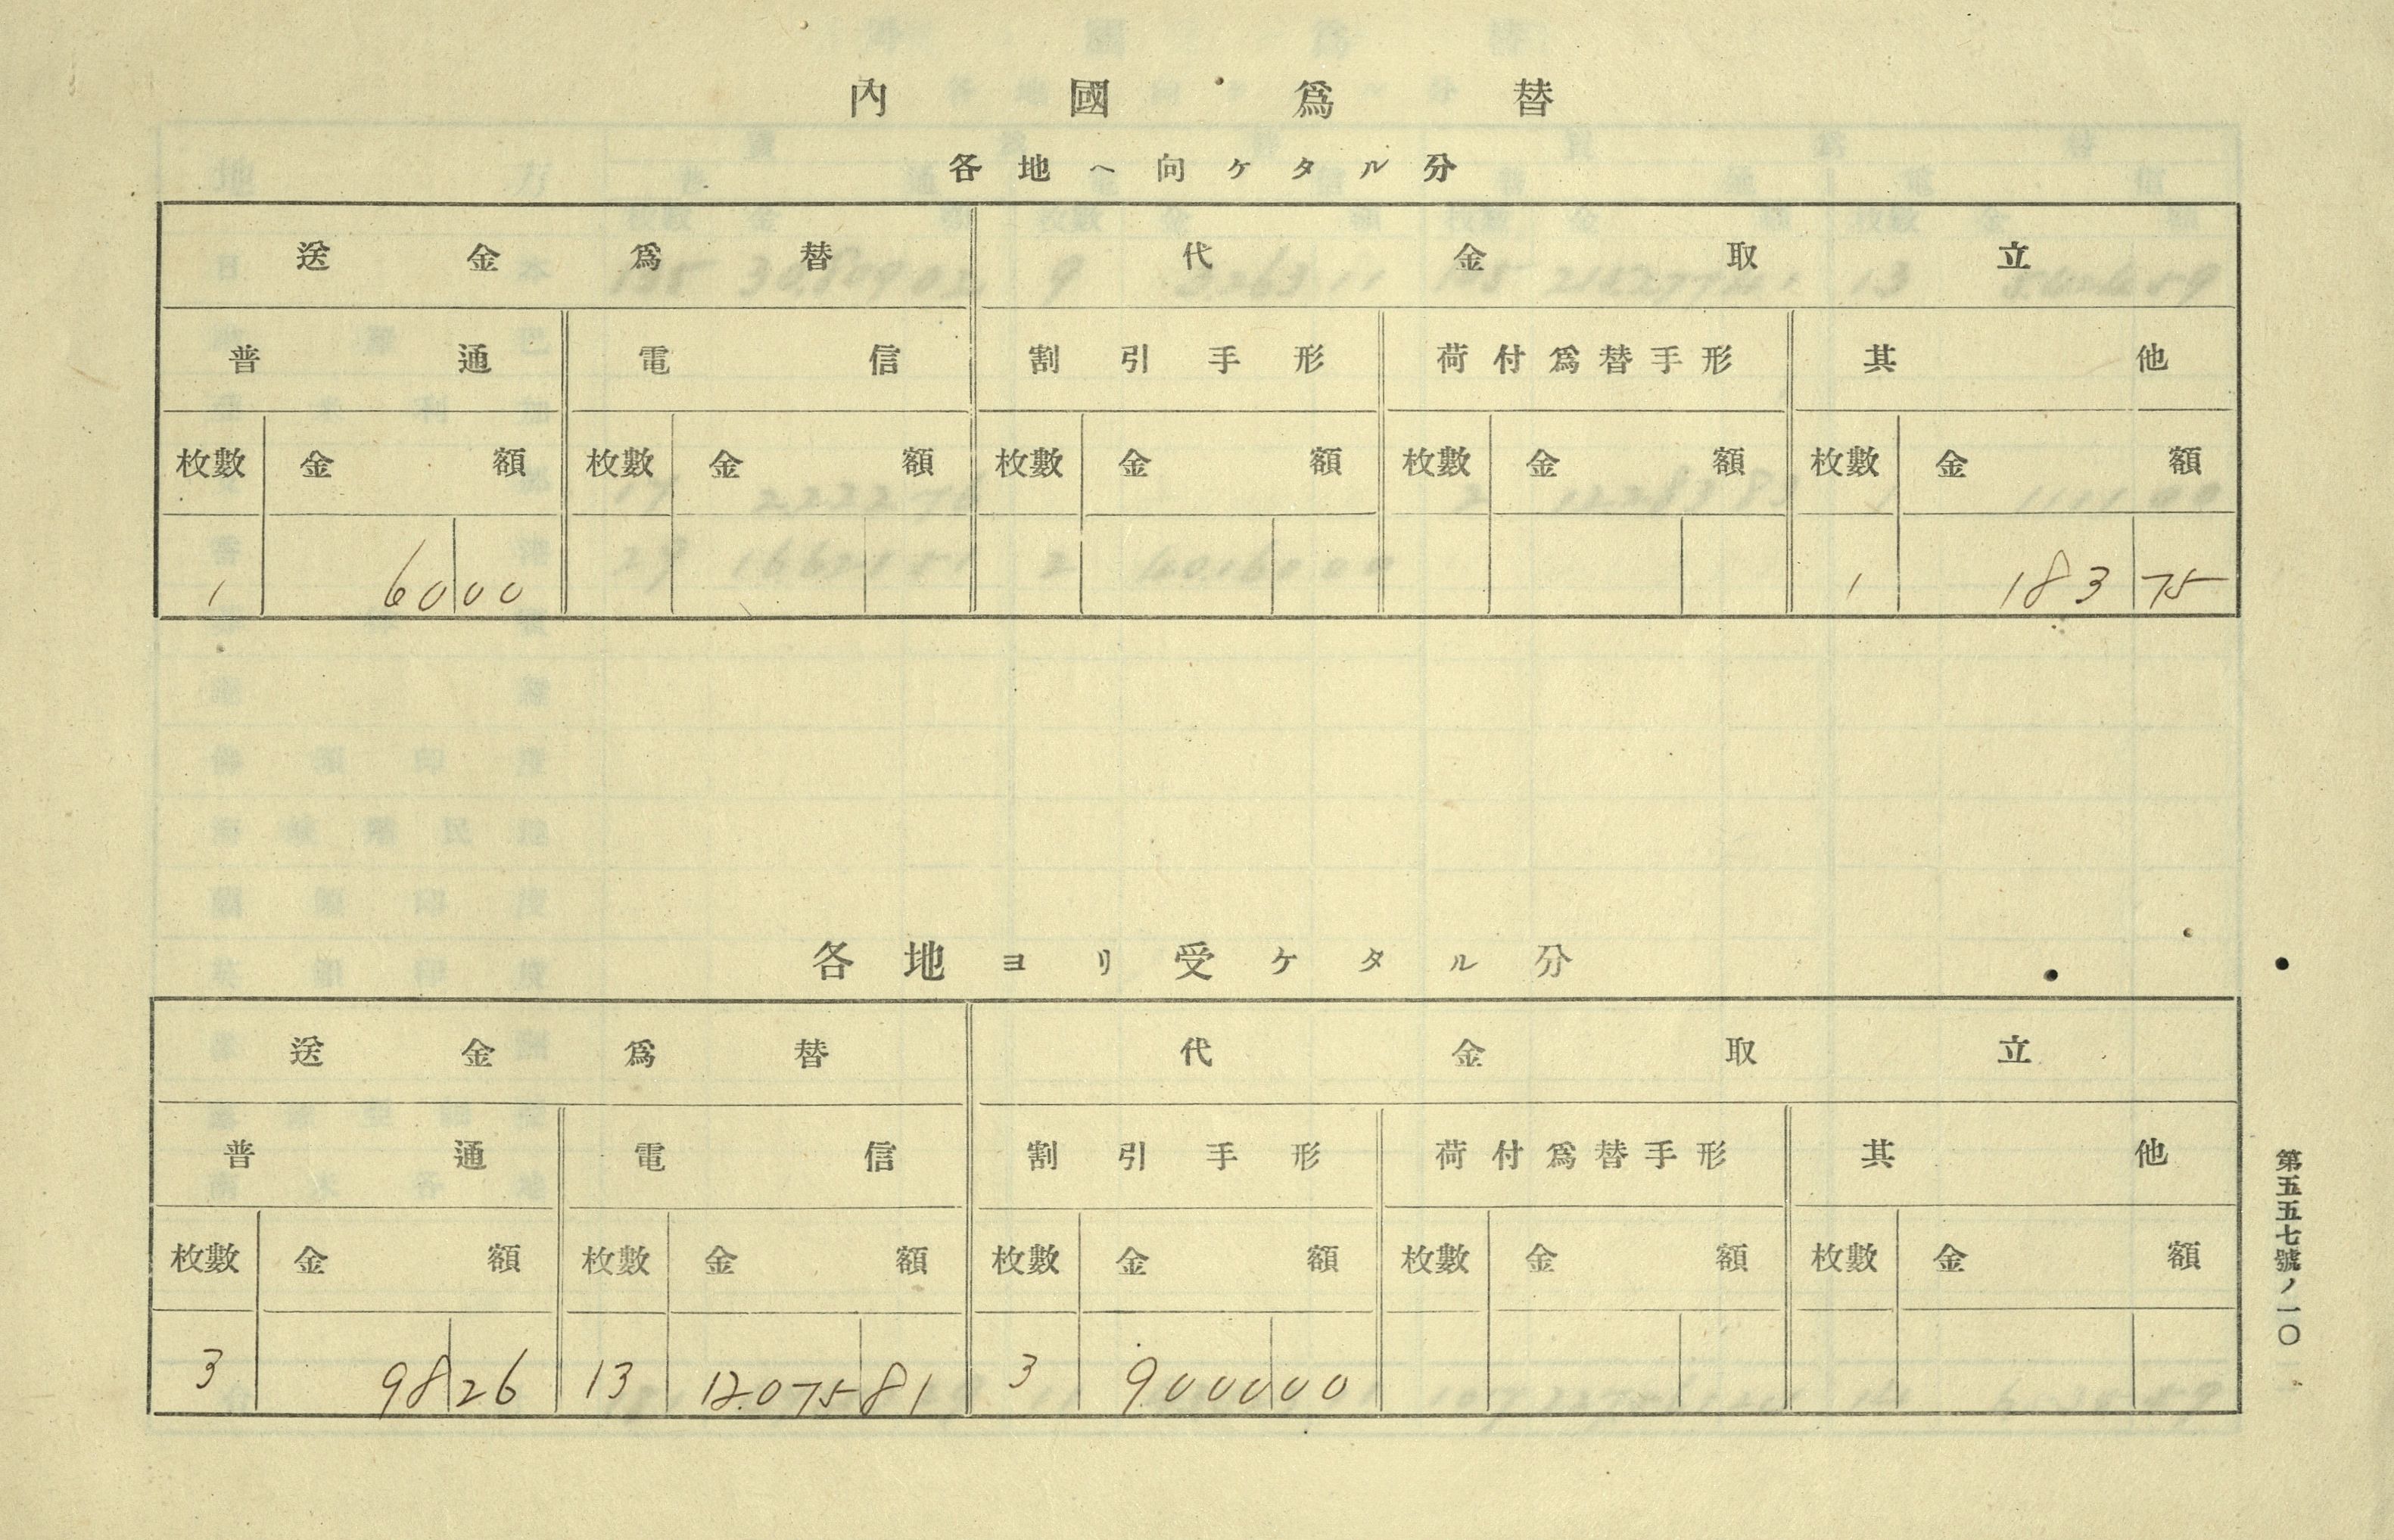 內國爲替
各地ヘ向ケタル分
送金爲替 代金取立
普通 電信 割引手形 荷付爲替手形 其他
枚數 金額 枚數 金額 枚數 金額 枚數 金額 枚數 金額
1 60 00 1 183 75
各地ヨリ受ケタル分
送金爲替 代金取立
普通 電信 割引手形 荷付爲替手形 其他
枚數 金額 枚數 金額 枚數 金額 枚數 金額 枚數 金額
3 98 26 13 12.075 81 3 9000 00
第五五七號ノ一〇